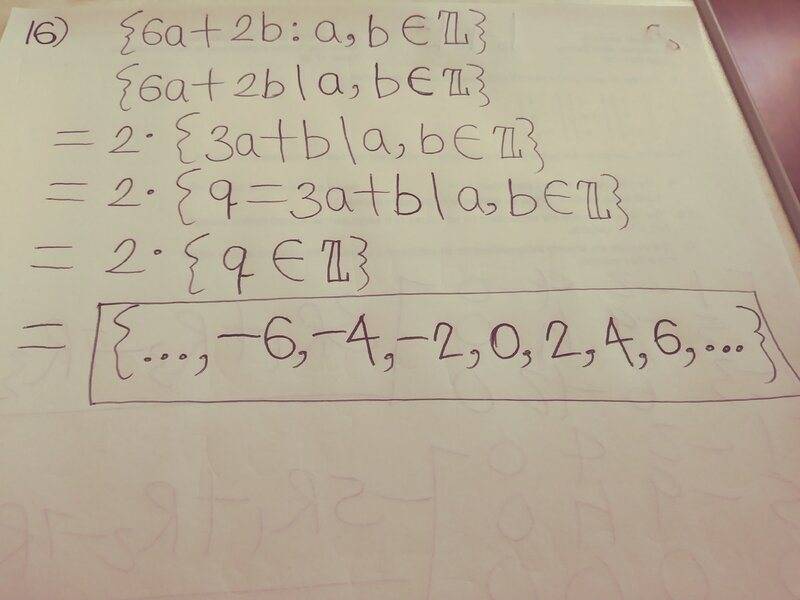 16) {6a+2b: a, b ∈ ℤ}
{6a+2b | a, b ∈ ℤ}
= 2· {3a+b | a, b ∈ ℤ}
= 2· {q=3a+b | a, b ∈ ℤ}
= 2· {q ∈ ℤ}
= {..., -6, -4, -2, 0, 2, 4, 6, ...}